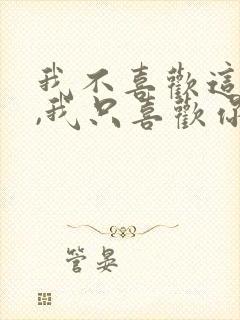 我不喜歡這
,我只喜歡你
管晏